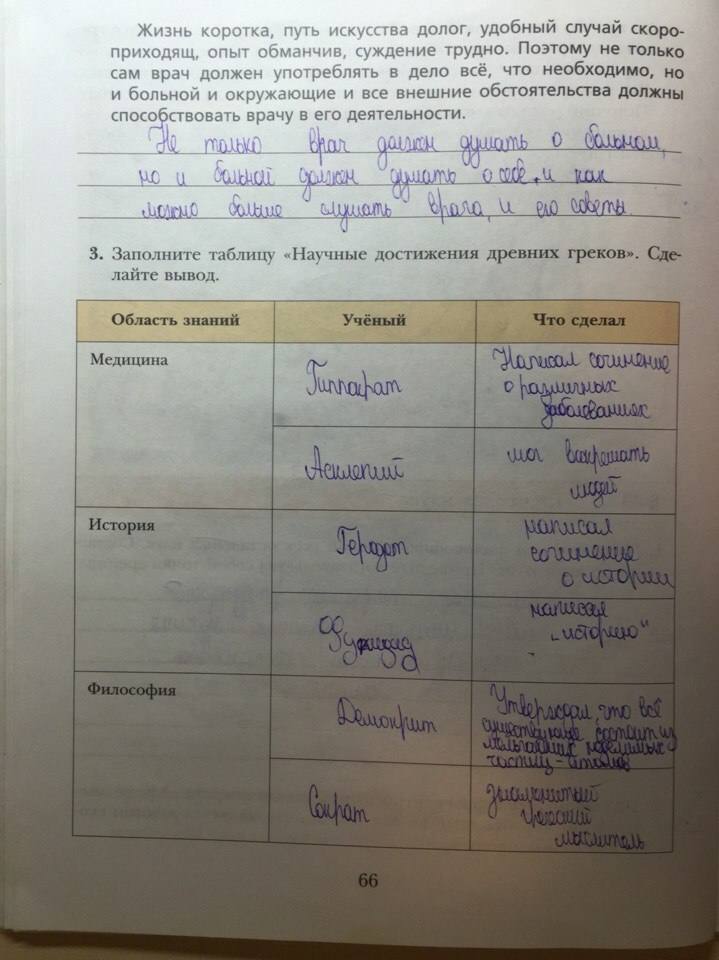 Жизнь коротка, путь искусства долог, удобный случай скоро-
приходящ, опыт обманчив, суждение трудно. Поэтому не только
сам врач должен употреблять в дело всё, что необходимо, но
и больной и окружающие и все внешние обстоятельства должны
способствовать врачу в его деятельности.
Не только врач должен думать о больном,
но и больной должен думать о себе, и как
можно больше слушать врача, и его советы.
3. Заполните таблицу «Научные достижения древних греков». Сде-
лайте вывод.
Область знаний Учёный Что сделал
Медицина
Гиппократ
Написал сочинение
о различных
заболеваниях
Асклепий
мог воскрешать
людей
История
Геродот
написал
сочинение
о истории
Фукидид
написал
„историю“
Философия
Демокрит
Утверждал, что всё
существующее состоит из
мельчайших неделимых
частиц - атомов
Сократ
Знаменитый
греческий
мыслитель
66